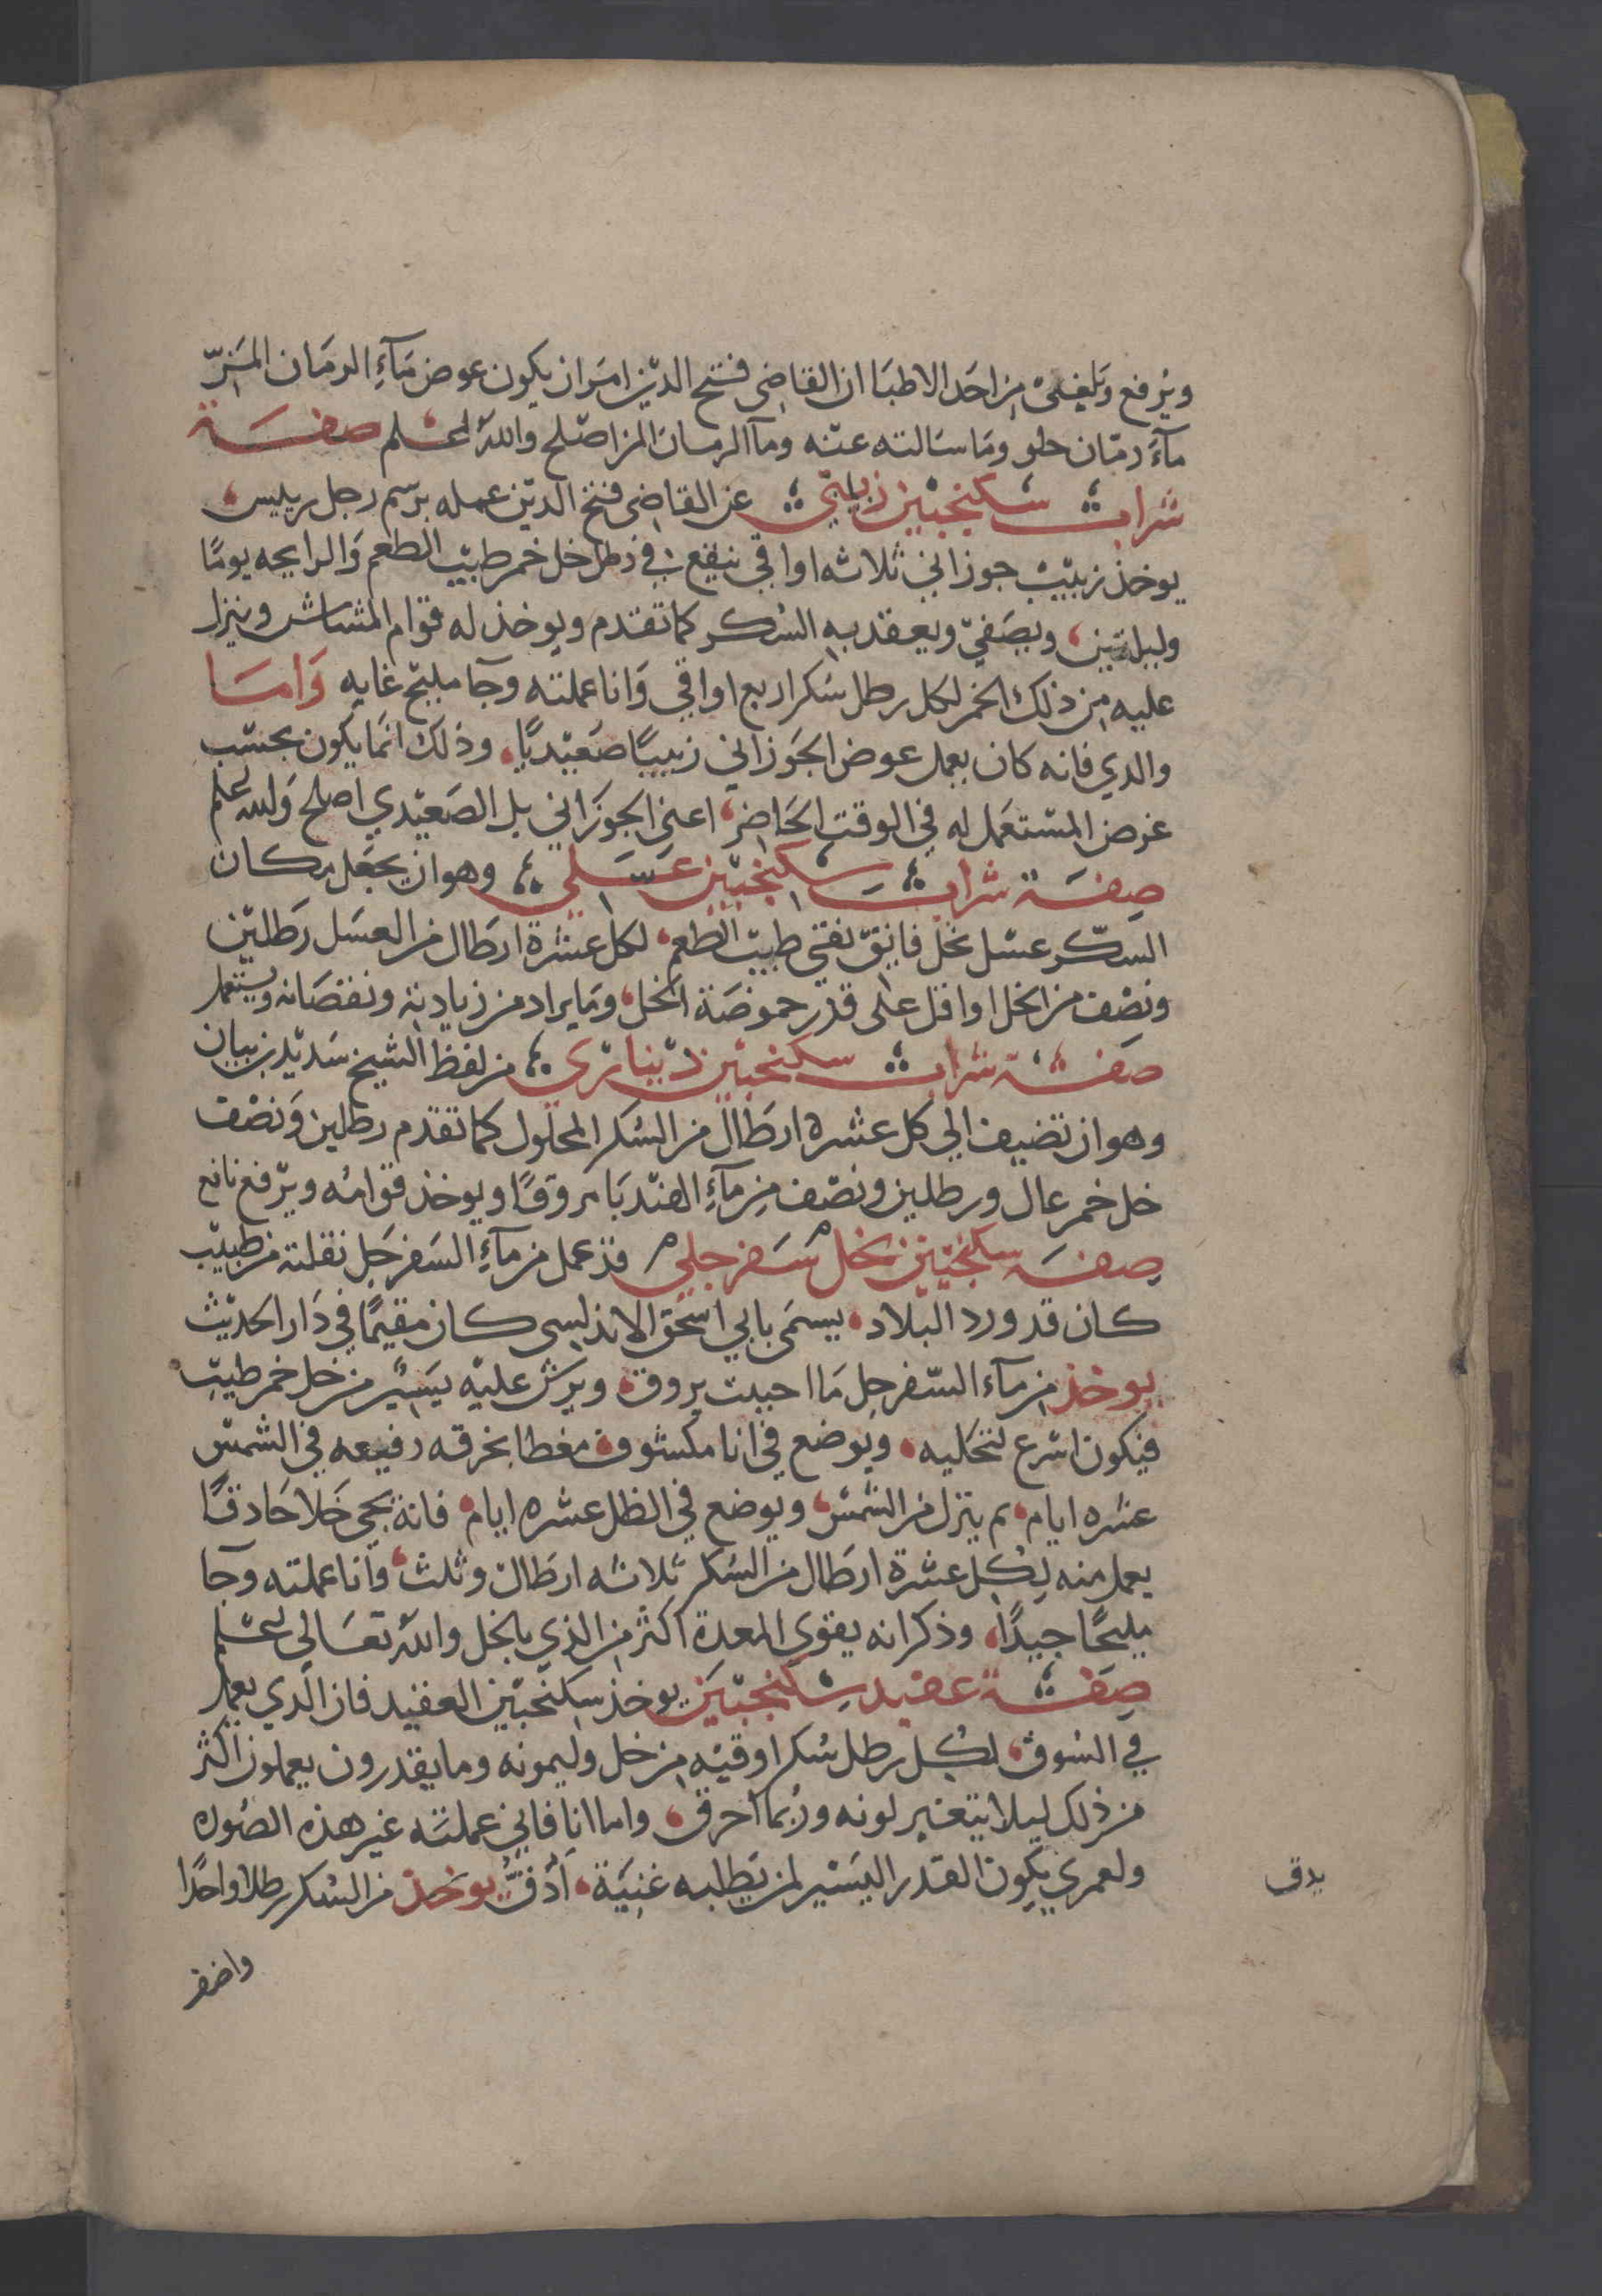 ويرفع وبلغني من احد الاطبا ان القاضي فتح الدين امر ان يكون عوض مآءِ الرمان المزّ
مآء رمّان حلو وما سالته عنه ومآ الرمان المز اصلح والله اعلم صفة
شراب سكنجبين زبيبي عن القاضي فتح الدين عمله برسم رجل رييس
يوخذ زبيب جوزاني ثلاثه اواقي ينقع في رطل خل خمر طيب الطعم والرايحه يومًا
وليلتين ويصفيّ ويعقد به السكر كما تقدم ويوخذ له قوام المشاش وينزل
عليه من ذلك الخمر لكل رطل سكر اربع اواقي وانا عملته وجآ مليح غايه واما
والدي فانه كان يعمل عوض الجوزاني زبيبًا صعيديًا وذلك انما يكون بحسب
غرض المستعمل له في الوقت الحاضر اعني الجوزاني بل الصعيدي اصلح والله اعلم
صفة شراب سكنجبين عسلي وهو ان يجعل مكان
السكر عسل نحل فايق نقي طيب الطعم لكل عشرة ارطال من العسل رطلين
ونصف من الخل او اقل على قدر حموضة الخل وما يراد من زيادته ونقصانه ويستعمل
صفة شراب سكنجبين ديناري من لفظ الشيخ سديد بن بيان
وهو ان تضيف الي كل عشره ارطال من السكر المحلول كما تقدم رطلين ونصف
خل خمر عال ورطلين ونصف من مآءِ الهندبا مروقًا ويوخذ قوامه ويرفع نافع
صفة سكنجبين بخل سفرجلي قد عمل من مآءِ السفرجل نقلته من طبيب
كان قد ورد البلاد يسمى بابي اسحق الاندلسي كان مقيمًا في دار الحديث
يوخذ من مآء السفرجل ما احببت يروق ويرش عليه يسير من خل خمر طيب
فيكون اسرع لتخليه ويوضع في انا مكشوف مغطا بخرقه رفيعه في الشمس
عشره ايام ثم ينزل من الشمس ويوضع في الظل عشره ايام فانه يجي خلا حاذقًا
يعمل منه لكل عشرة ارطال من السكر ثلاثه ارطال وثلث وانا عملته وجآ
مليحًا جيدًا وذكر انه يقوي المعدة اكثر من الذي بالخل والله تعالي اعلم
صفة عقيد سكنجبين يوخذ سكنجبين العقيد فان الذي يعمل
في السوق لكل رطل سكر اوقيه من خل وليمونه وما يقدرون يعملون اكثر
من ذلك ليلا يتغير لونه وربما احرق واما انا فاني عملته غير هذه الصوره
ولعمري يكون القدر اليسير لمن يطلبه غنية ادق يوخذ من السكر رطلا واحدًا
يدق
واضف